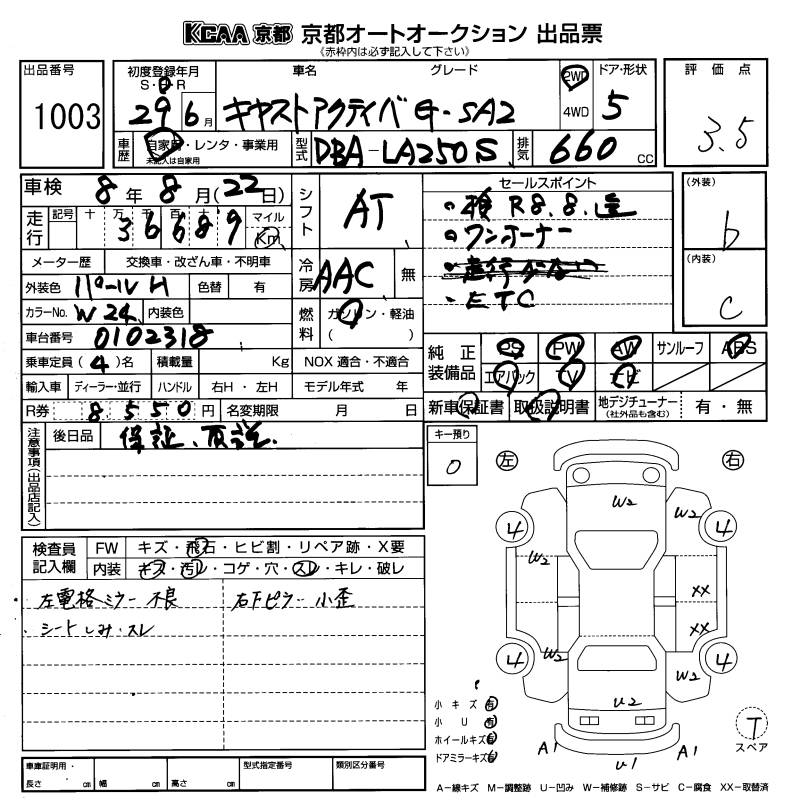 KCAA 京都 京都オートオークション 出品票
《赤枠内は必ず記入して下さい》
出品番号
1003
初度登録年月
S・H・R
29 6月
車名 グレード
キャストアクティバ G・SA2
2WD
4WD
ドア・形状
5
評価点
3.5
車歴
自家用・レンタ・事業用
未記入は自家用
型式
DBA-LA250S
排気
660 CC
車検 8年8月(22日)
走行
記号 十 万 千 百 十
36689
マイル
Km
シフト
AT
メーター歴 交換車・改ざん車・不明車
外装色 パールW 色替 有
カラーNo. W24 内装色
車台番号 0102318
冷房
AAC 無
燃料
ガソリン・軽油
( )
乗車定員(4)名 積載量 Kg NOX適合・不適合
輸入車 ディーラー・並行 ハンドル 右H・左H モデル年式 年
R券 8550円 名変期限 月 日
セールスポイント
・検 R8.8.迄
・ワンオーナー
・ETC
(外装)
b
(内装)
C
純正装備品
PS PW AW サンルーフ ABS
エアバック TV ナビ
新車保証書 取扱説明書 地デジチューナー(社外品も含む) 有・無
注意事項(出品店記入)
後日品 保証、取説.
キー預り
0
検査員記入欄
FW キズ・飛石・ヒビ割・リペア跡・X要
内装 キズ・汚レ・コゲ・穴・スレ・キレ・破レ
・左電格ミラー不良 右下ピラー小歪
・シートしみ・スレ
左 右
W2 W2
4 4
W2
XX
XX
4 4
W2 W2
U2
A1 U1 A1
小キズ 有
小U 有
ホイールキズ 有
ドアミラーキズ 有
T
スペア
A-線キズ M-調整跡 U-凹み W-補修跡 S-サビ C-腐食 XX-取替済
車庫証明用・
長さ cm 幅 cm 高さ cm
型式指定番号
類別区分番号